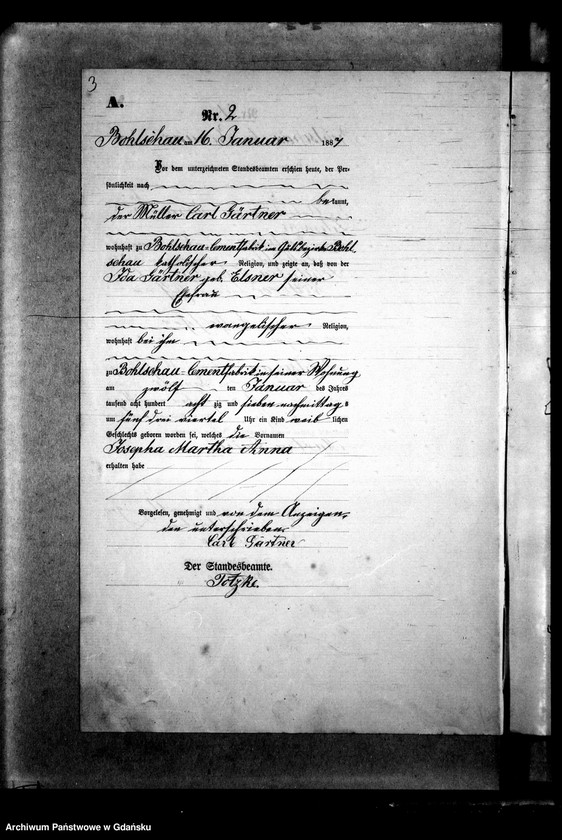 3
A.
Nr. 2
Bohlschau am 16. Januar 1887
Vor dem unterzeichneten Standesbeamten erschien heute, der Per-
sönlichkeit nach
bekannt,
der Müller Carl Gärtner
wohnhaft zu Bohlschau-Cementfabrik im Gutsbezirk Bohl-
schau katholischer Religion, und zeigte an, daß von der
Ida Gärtner geb. Elsner seiner
Ehefrau
evangelischer Religion,
wohnhaft bei ihm
zu Bohlschau-Cementfabrik in seiner Wohnung
am zwölf ten Januar des Jahres
tausend acht hundert acht zig und sieben nachmittags
um fünf drei viertel Uhr ein Kind weib lichen
Geschlechts geboren worden sei, welches die Vornamen
Josepha Martha Anna
erhalten habe
Vorgelesen, genehmigt und von dem Anzeigen-
den unterschrieben
Carl Gärtner
Der Standesbeamte.
Totzke.
Archiwum Państwowe w Gdańsku